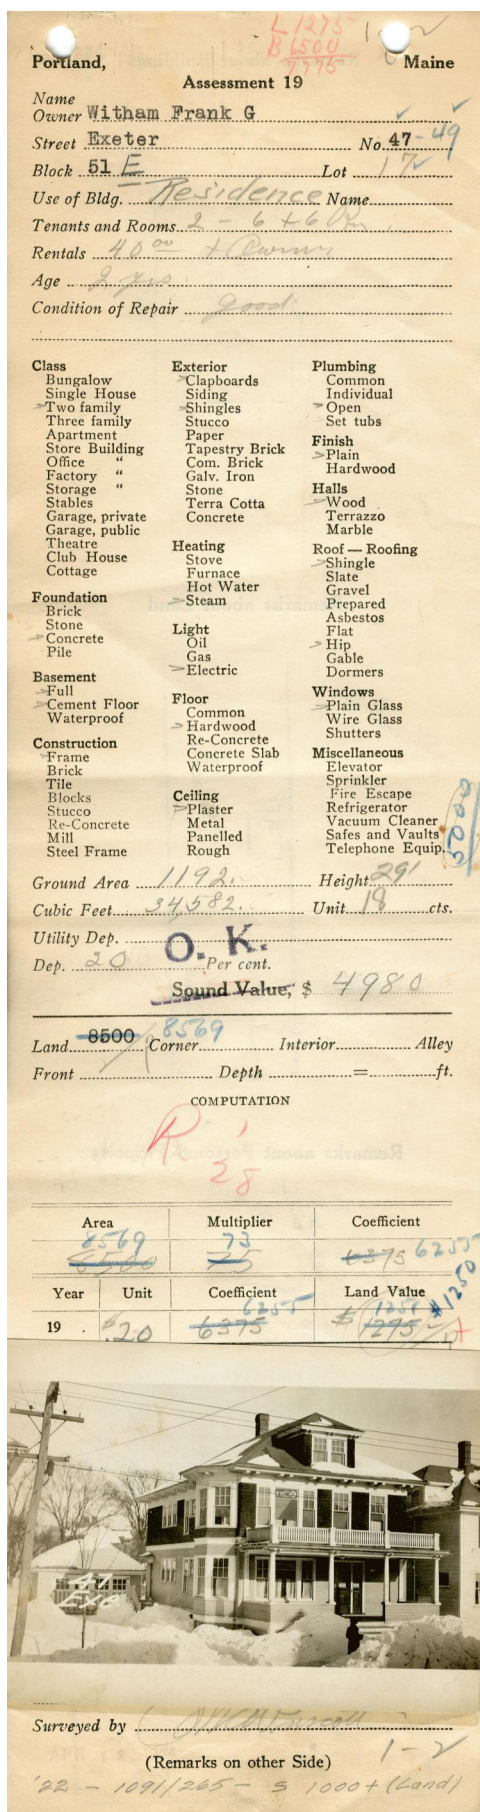 L 1275
B 6500
7775
Portland, Maine
Assessment 19
Name
Owner Witham Frank G
Street Exeter No. 47-49
Block 51 E Lot 17
Use of Bldg. Residence Name
Tenants and Rooms 2 - 6 + 6 Rm
Rentals 40 00 + Owner
Age 2 yrs.
Condition of Repair good
Class
Bungalow
Single House
Two family
Three family
Apartment
Store Building
Office "
Factory "
Storage "
Stables
Garage, private
Garage, public
Theatre
Club House
Cottage
Foundation
Brick
Stone
Concrete
Pile
Basement
Full
Cement Floor
Waterproof
Construction
Frame
Brick
Tile
Blocks
Stucco
Re-Concrete
Mill
Steel Frame
Exterior
Clapboards
Siding
Shingles
Stucco
Paper
Tapestry Brick
Com. Brick
Galv. Iron
Stone
Terra Cotta
Concrete
Heating
Stove
Furnace
Hot Water
Steam
Light
Oil
Gas
Electric
Floor
Common
Hardwood
Re-Concrete
Concrete Slab
Waterproof
Ceiling
Plaster
Metal
Panelled
Rough
Plumbing
Common
Individual
Open
Set tubs
Finish
Plain
Hardwood
Halls
Wood
Terrazzo
Marble
Roof — Roofing
Shingle
Slate
Gravel
Prepared
Asbestos
Flat
Hip
Gable
Dormers
Windows
Plain Glass
Wire Glass
Shutters
Miscellaneous
Elevator
Sprinkler
Fire Escape
Refrigerator
Vacuum Cleaner
Safes and Vaults
Telephone Equip.
5000
Ground Area 1192. Height 29'
Cubic Feet 34,582. Unit 18 cts.
Utility Dep.
O. K.
Dep. 20 Per cent.
Sound Value, $ 4980
Land 8500 8569 Corner Interior Alley
Front Depth = ft.
COMPUTATION
R
28
Area Multiplier Coefficient
8569 73 6255
8500 75 6375
Year Unit Coefficient Land Value
6255 1251 $1250
19 $.20 6375 $ 1275
47
Exe
Surveyed by
(Remarks on other Side)
1-2
'22 - 1091/265 - $ 1000 + (Land)